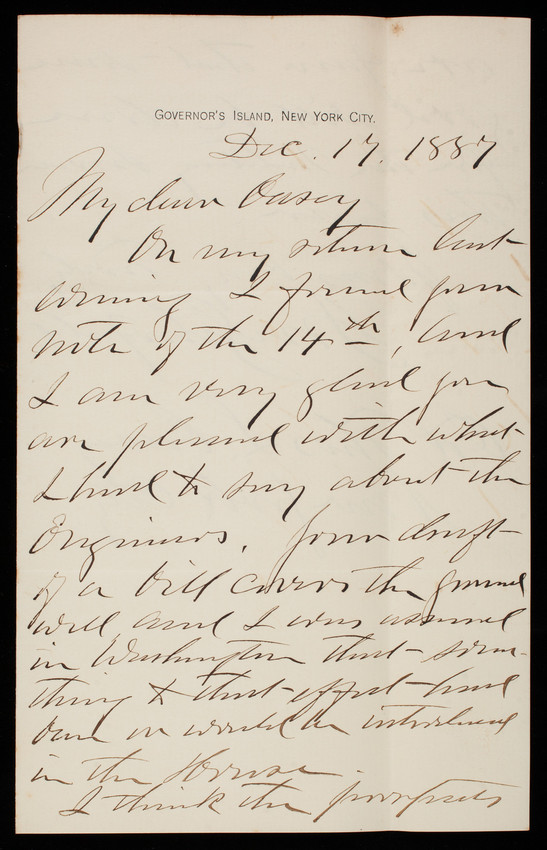 Governor's Island, New York City.
Dec. 17, 1887
My dear Casey
On my return last
evening I found your
note of the 14th, and
I am very glad you
are pleased with what
I had to say about the
Engineers. Your draft
of a bill covers the ground
well and I was assured
in Washington that some-
thing to that effect had
been or would be introduced
in the House.
I think the prospects